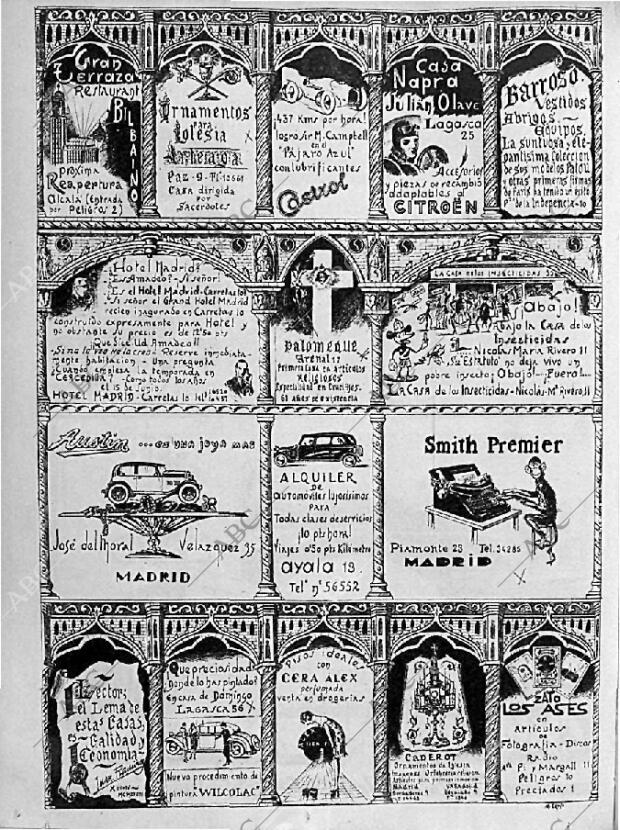 Gran
Terraza
Restaurant
BILBAINO
próxima
Reapertura
Alcalá (entrada
por Peligros 2)
Ornamentos
para
Iglesia
Paz-9-Tf:
Casa dirigida
por
Sacerdotes
437 Kms por hora!
logro Sir M. Campbell
en el
"Pájaro Azul"
con lubrificantes
Castrol
Casa
Napra
Julián Olave
Lagasca
25
Accesorios
y piezas de recambio
adaptables a
CITROËN
Barroso
Vestidos
Abrigos-
Equipos
La suntuosa y ele-
pantisima Coleccion
de sus modelos Patou
y otras primeras firmas
de Paris
de la Independencia-10
¡Hotel Madrid?
¿Es Amadeo? ¡Si señor!
¿Es el Hotel Madrid-Carretas 10?
Si señor el Grand Hotel Madrid
recien inaugurado en Carretas 10
construido expresamente para Hotel y
no obstante su precio es de
¡Que dice Ud Amadeo!!
Reserve inmediata-
mente habitacion - una pregunta
¿Cuando empieza la temporada en
CERCEDILLA? - Como todos los años
el 15 de Junio.
HOTEL MADRID - Carretas 10
Palomeque
Arenal 17
Primera casa en articulos
Religiosos
Especialidad en
años de existencia
LA CASA de los INSECTICIDAS
Abajo!
Abajo la Casa de los
Insecticidas
Nicolas Maria Rivero 11
no deja vivir a un
pobre insecto; Abajo! Fuera!
La Casa de los Insecticidas-Nicolas Mª Rivero 11
Austin ... es una joya mas
José del Moral Velazquez 35
MADRID
ALQUILER
DE
automóviles lujosisimos
PARA
Todas clases de servicios
¡10 pts hora!
Viajes 0'50 pts Kilómetro
ayala 13.
Telº nº 56552
Smith Premier
Piamonte 23 Tel. 34285
MADRID
Lector;
el Lema de
estas Casas
es
Calidad y
Economia
Que preciosidad!
Donde lo has pintado?
En casa de Domingo
LAGASCA 56
Nuevo procedimiento de
pintura "WILCOLAC"
Pisos ideales
con
CERA ALEX
perfumada
venta en drogerias
CADEROT
Ornamentos de Iglesia
Madrid
ZATO
LOS ASES
en
Articulos
de
Fotografia-Discos
Radio
Pi y Margall 11
Peligros 10
Preciados 1
ABC